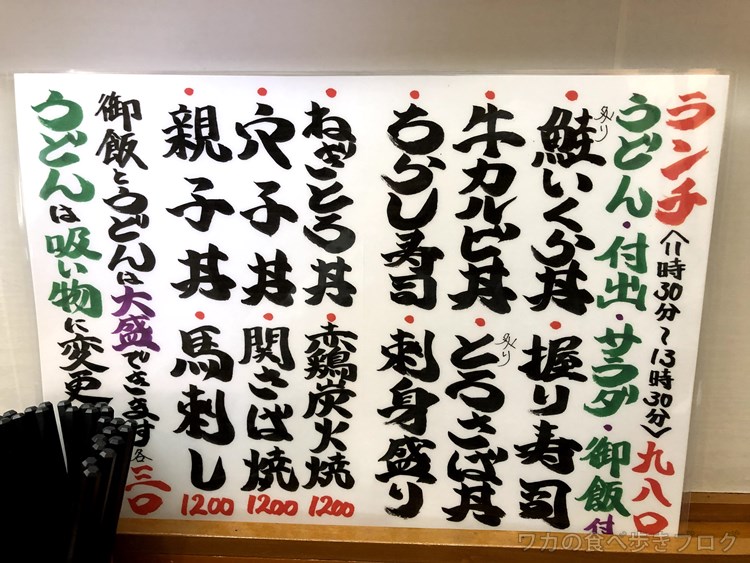 ランチ〈11時30分〜13時30分〉九八〇
うどん・付出・サラダ・御飯付
・炙り鮭いくら丼
・握り寿司
・牛カルビ丼
・炙りとろさば丼
・ちらし寿司
・刺身盛り
・ねぎとろ丼
・赤鶏炭火焼 1200
・穴子丼
・関さば焼 1200
・親子丼
・馬刺し 1200
御飯とうどんは大盛できます 各三〇
うどんは吸い物に変更
ワカの食べ歩きブログ